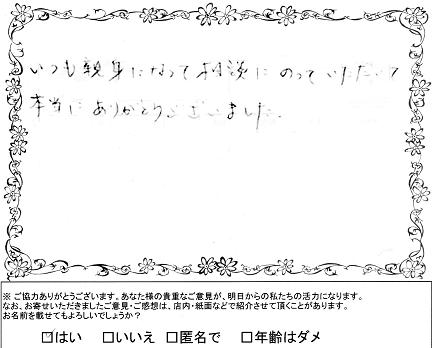 いつも親身になって相談にのっていただいて
本当にありがとうございました。
※ ご協力ありがとうございます。あなた様の貴重なご意見が、明日からの私たちの活力になります。
なお、お寄せいただきましたご意見・ご感想は、店内・紙面などで紹介させて頂くことがあります。
お名前を載せてもよろしいでしょうか？
☑はい □いいえ □匿名で □年齢はダメ